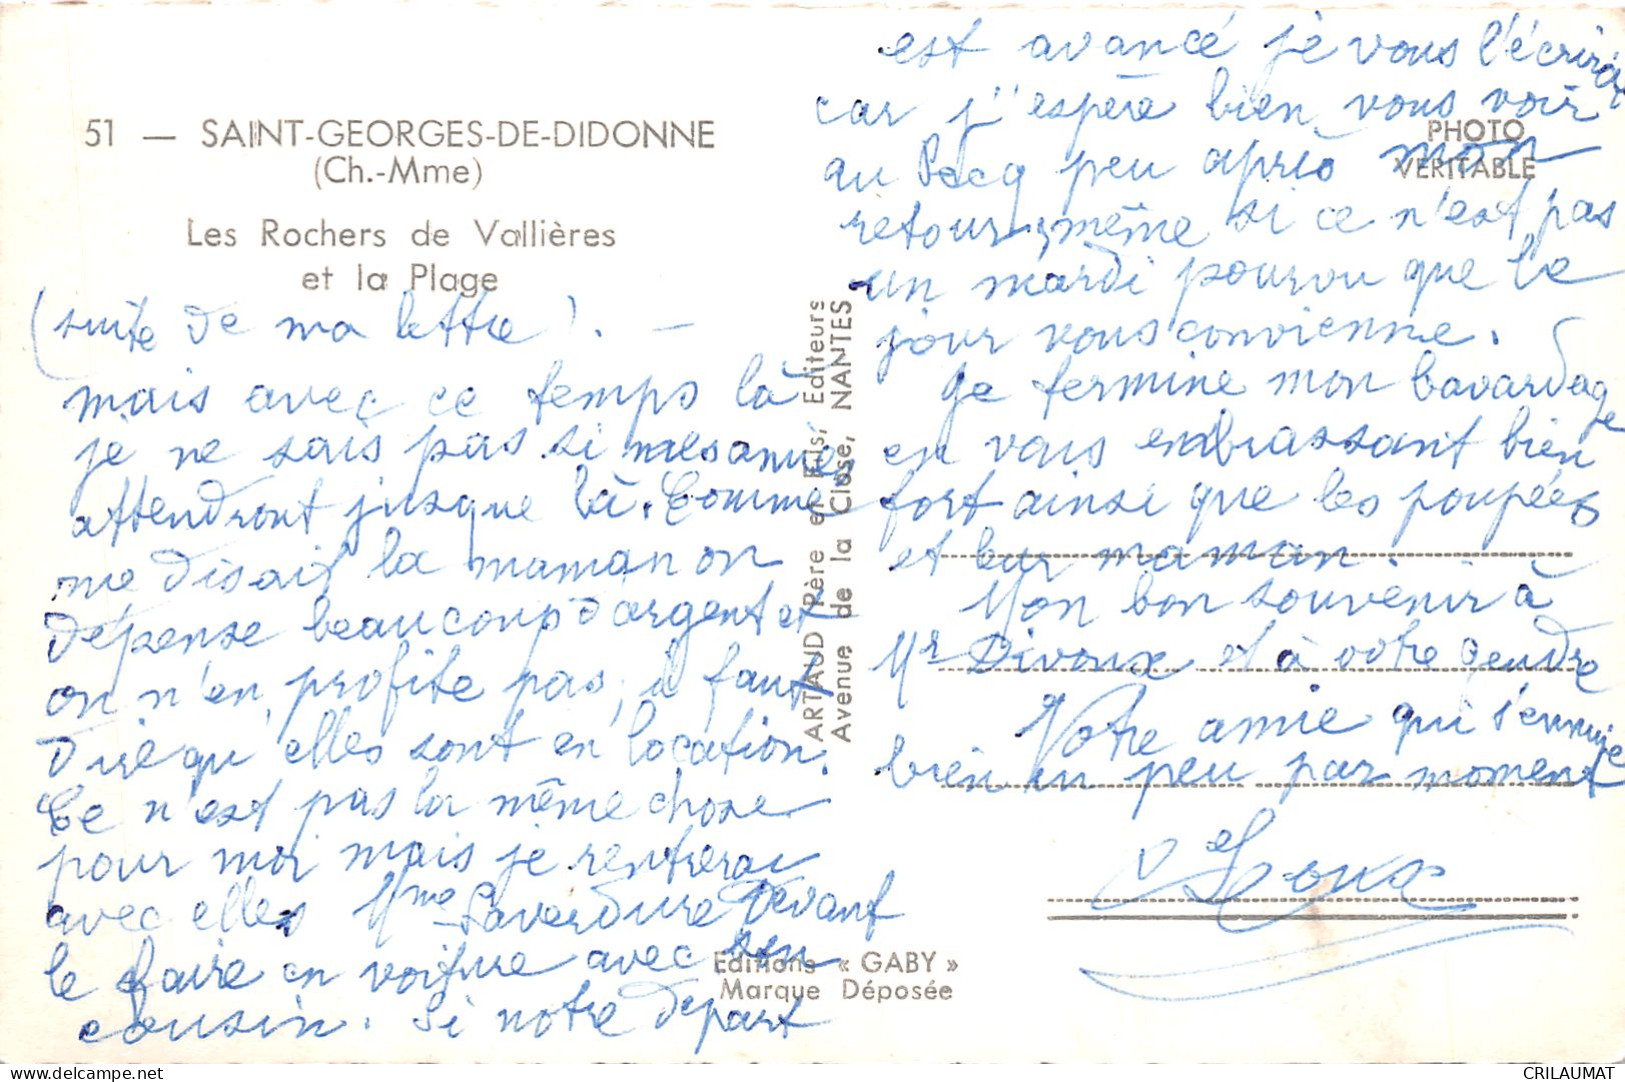 51 — SAINT-GEORGES-DE-DIDONNE
(Ch.-Mme)
Les Rochers de Vallières
et la Plage
(suite de ma lettre). —
mais avec ce temps là
je ne sais pas si mes amies
attendront jusque là. Comme
me disait la maman on
dépense beaucoup d'argent et
on n'en profite pas, il faut
dire qu'elles sont en location.
Ce n'est pas la même chose
pour moi mais je rentrerai
avec elles Mme Laverdure devant
le faire en voiture avec son
cousin. Si notre départ
ARTAUD Père et Fils, Editeurs
Avenue de la Close, NANTES
Editions « GABY »
Marque Déposée
PHOTO
VERITABLE
est avancé je vous l'écrirai
car j'espère bien vous voir
au Pecq peu après mon
retour, même si ce n'est pas
un mardi pourvu que le
jour vous convienne.
Je termine mon bavardage
en vous embrassant bien
fort ainsi que les poupées
et leur maman.
Mon bon souvenir à
Mr Divoux et à votre gendre
Votre amie qui s'ennuie
bien un peu par moment
CRILAUMAT